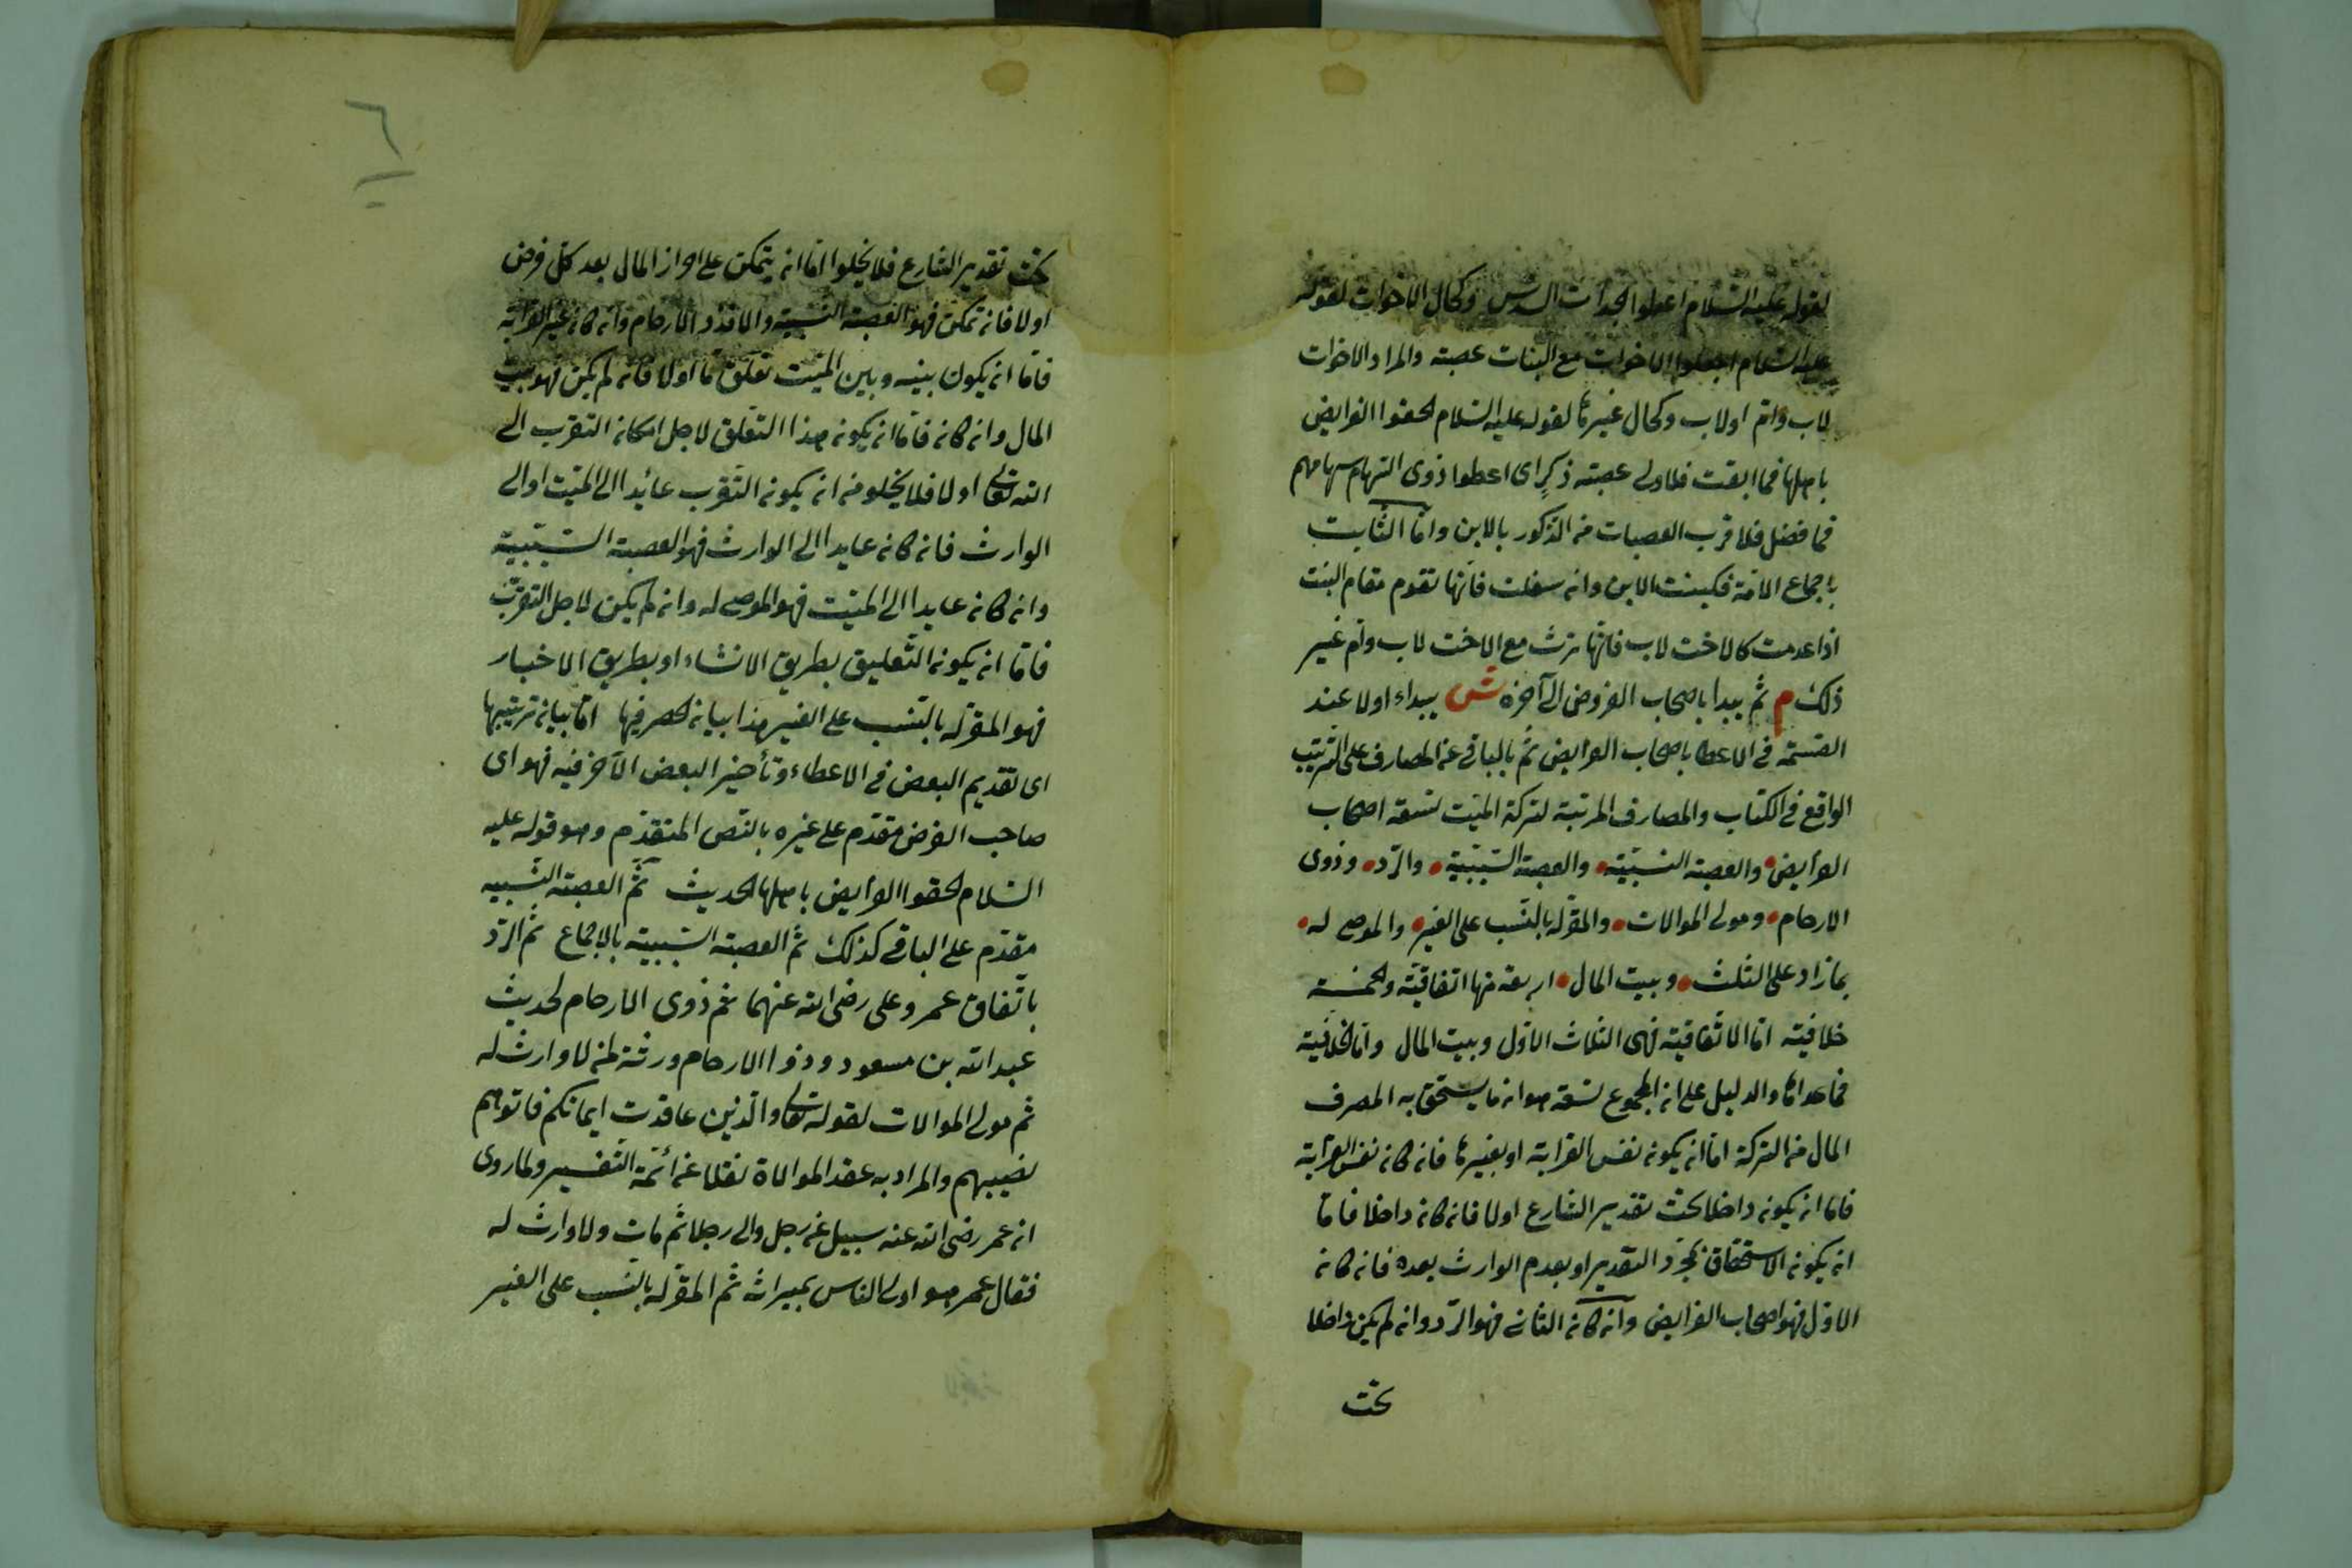 لقوله عليه السلام اعطوا الجدات السدس وكحال الاخوات لقوله
عليه السلام اجعلوا الاخوات مع البنات عصبة والمراد الاخوات
لاب وام او لاب وكحال غيرها لقوله عليه السلام الحقوا الفرايض
باهلها فما ابقت فلاولى عصبة ذكرٍ اى اعطوا ذوى السهام سهامهم
فما فضل فلاقرب العصبات من الذكور بالابن واما الثابت
باجماع الامة فكبنت الابن وان سفلت فانها تقوم مقام البنت
اذا عدمت كالاخت لاب فانها ترث مع الاخت لاب وام غير
ذلك م ثم يبدأ باصحاب الفروض الى آخره ش يبداء اولا عند
القسمة فى الاعطا باصحاب الفرايض ثم بالباقى عن المصارف على الترتيب
الواقع فى الكتاب والمصارف المرتبة لتركة الميت تسعة اصحاب
الفرايض والعصبة النسبية والعصبة السببية والرد وذوى
الارحام ومولى الموالات والمقر له بالنسب على الغير والموصى له
بما زاد على الثلث وبيت المال اربعة منها اتفاقية والخمسة
خلافية اما الاتفاقية فهى الثلاث الاول وبيت المال واما الخلافية
فما عداها والدليل على ان المجموع تسعة هو ان ما يستحق به المصرف
المال من التركة اما ان يكون نفس القرابة او بغيرها فان كان نفس القرابة
فاما ان يكون داخلا تحت تقدير الشارع اولا فان كان داخلا فاما
ان يكون الاستحقاق بمجرد التقدير او بعدم الوارث بعده فان كان
الاول فهو اصحاب الفرايض وان كان الثانى فهو الرد وان لم يكن داخلا
تحت
٦
تحت تقدير الشارع فلا يخلوا اما ان يتمكن على احراز المال بعد كل فرض
اولا فان تمكن فهو العصبة النسبية والا فذو الارحام وان كان غير القرابة
فاما ان يكون بينه وبين الميت تعلق ما اولا فان لم يكن فهو بيت
المال وان كان فاما ان يكون هذا التعلق لاجل امكان التقرب الى
الله تعالى اولا فلا يخلو من ان يكون التقرب عائدا الى الميت او الى
الوارث فان كان عايدا الى الوارث فهو العصبة السببية
وان كان عايدا الى الميت فهو الموصى له وان لم يكن لاجل التقرب
فاما ان يكون التعليق بطريق الانشاء او بطريق الاخبار
فهو المقر له بالنسب على الغير هذا بيان الحصر فيها اما بيان ترتيبها
اى تقديم البعض فى الاعطاء وتأخير البعض الآخر فيه فهو اى
صاحب الفرض مقدم على غيره بالنص المتقدم وهو قوله عليه
السلام الحقوا الفرايض باهلها الحديث ثم العصبة النسبيه
مقدم على الباقى كذلك ثم العصبة السببية بالاجماع ثم الرد
باتفاق عمر وعلى رضى الله عنهما ثم ذوى الارحام لحديث
عبد الله بن مسعود وذوا الارحام ورثة لمن لا وارث له
ثم مولى الموالات لقوله تعالى والذين عاقدت ايمانكم فاتوهم
نصيبهم والمراد به عقد الموالاة نقلا عن ائمة التفسير ولما روى
ان عمر رضى الله عنه سبيل عن رجل والى رجلا ثم مات ولا وارث له
فقال عمر هو اولى الناس بميراثه ثم المقر له بالنسب على الغير